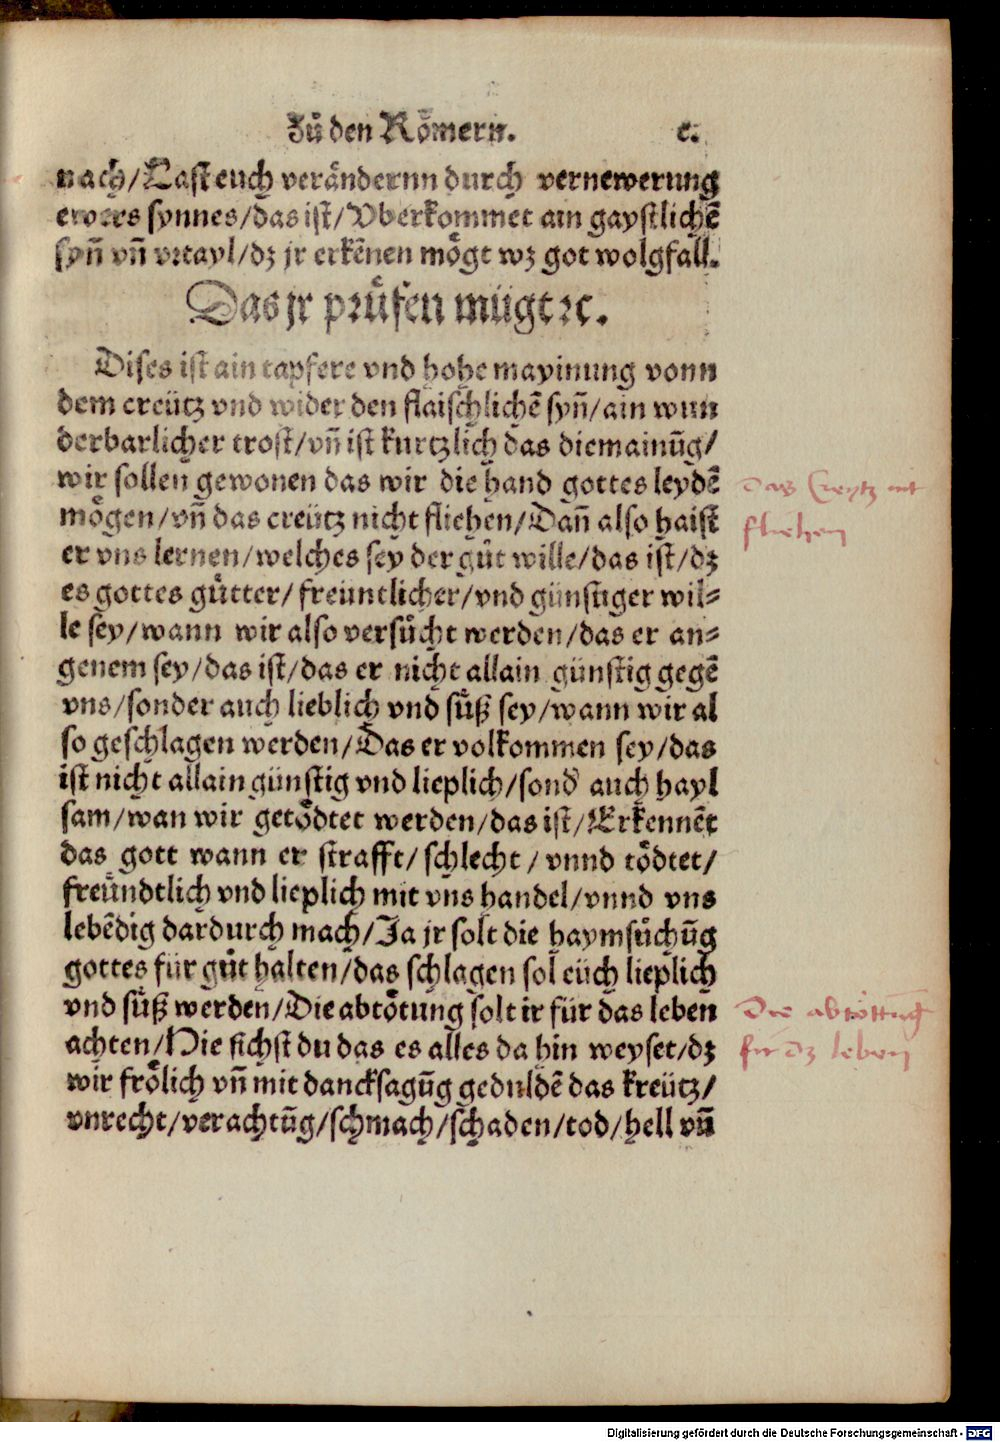 Zů den Rőmern. c.
nach/Last euch verändernn durch vernewerung
ewers synnes/das ist/Vberkommet ain gaystlichē
syn̄ vn̄ vrtayl/dz jr erkēnen mőgt wz got wolgfall.
Das jr průfen mügt ꝛc.
Dises ist ain tapfere vnd hohe mayinung vonn
dem creütz vnd wider den flaischlichē syn̄/ain wun
derbarlicher trost/vn̄ ist kurtzlich das die mainūg/
wir sollen gewonen das wir die hand gottes leydē
mőgen/vn̄ das creütz nicht fliehen/Dan̄ also haist
er vns lernen/welches sey der gůt wille/das ist/dz
es gottes gůtter/freüntlicher/vnd günstiger wil⸗
le sey/wann wir also versůcht werden/das er an⸗
genem sey/das ist/das er nicht allain günstig gegē
vns/sonder auch lieblich vnd sůß sey/wann wir al
so geschlagen werden/Das er volkommen sey/das
ist nicht allain günstig vnd lieplich/sond̕ auch hayl
sam/wan wir getődtet werden/das ist/Erkennēt
das gott wann er strafft/schlecht/vnnd tődtet/
freündtlich vnd lieplich mit vns handel/vnnd vns
lebēdig dardurch mach/Ja jr solt die haymsůchūg
gottes für gůt halten/das schlagen sol eüch lieplich
vnd sůß werden/Die abtőtung solt ir für das leben
achten/Hie sichst du das es alles da hin weyset/dz
wir frőlich vn̄ mit dancksagūg geduldē das kreütz/
vnrecht/verachtūg/schmach/schaden/tod/hell vn̄
das Creytz nit
fliehen
Die abtőttung
für dz leben
Digitalisierung gefördert durch die Deutsche Forschungsgemeinschaft - DFG